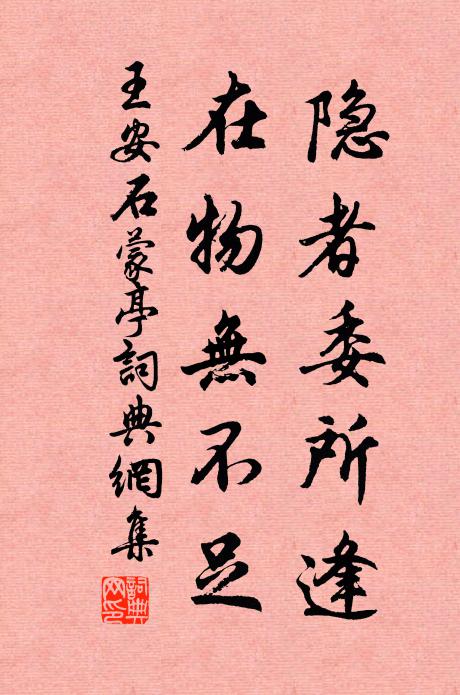 隐者委所逢
在物無不足
王安石蒙亭詞典網集
詞典网印